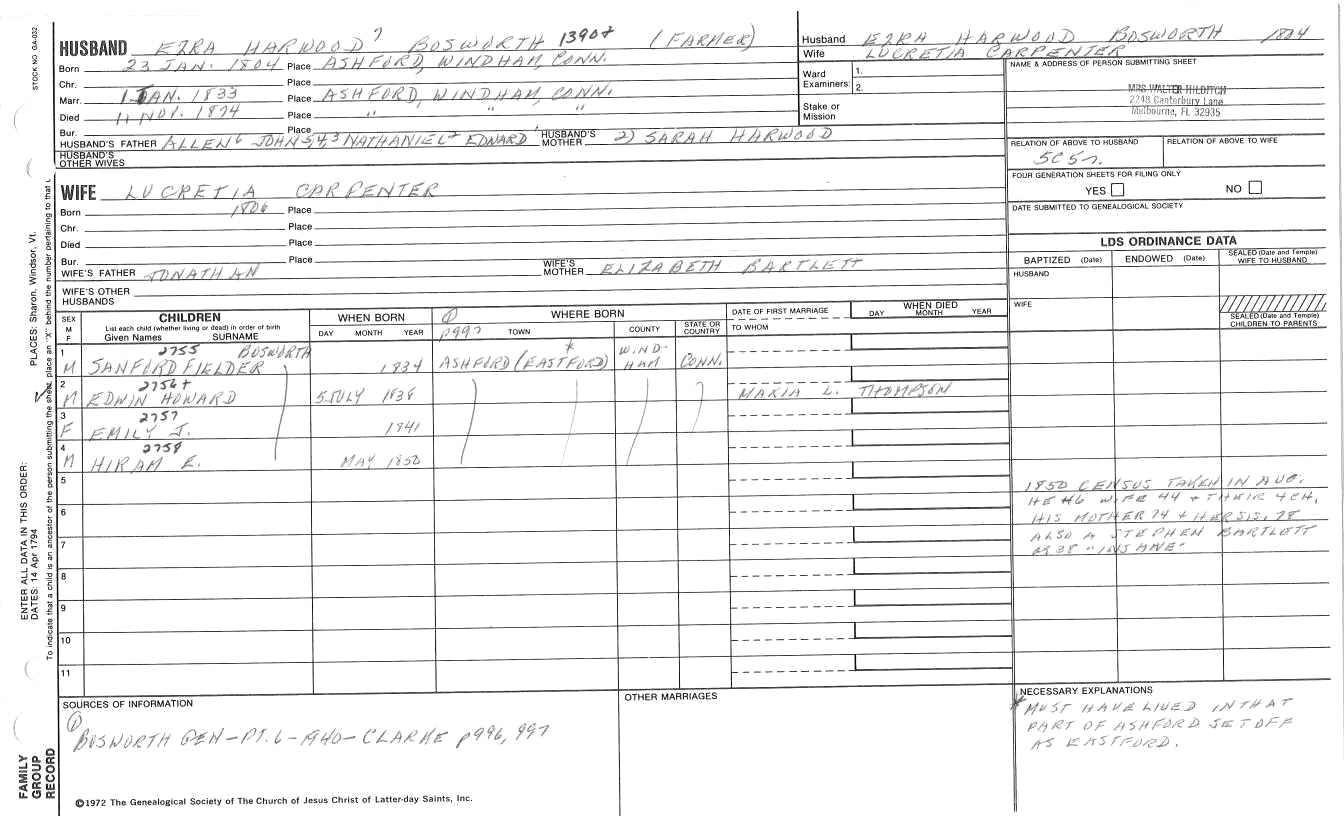 STOCK NO. GA-032
HUSBAND EZRA HARWOOD 7 BOSWORTH 1390+ (FARMER)
Born 23 JAN. 1804 Place ASHFORD, WINDHAM, CONN.
Chr. Place
Marr. 1 JAN. 1833 Place ASHFORD, WINDHAM, CONN.
Died 11 NOV. 1874 Place " "
Bur. Place
HUSBAND'S FATHER ALLEN 6 JOHN 5,4,3 NATHANIEL 2 EDWARD 1 HUSBAND'S MOTHER 2) SARAH HARWOOD
HUSBAND'S OTHER WIVES
WIFE LUCRETIA CARPENTER
Born 1806 Place
Chr. Place
Died Place
Bur. Place
WIFE'S FATHER JONATHAN WIFE'S MOTHER ELIZABETH BARTLETT
WIFE'S OTHER HUSBANDS
Husband EZRA HARWOOD BOSWORTH 1804
Wife LUCRETIA CARPENTER
Ward Examiners: 1. 2.
Stake or Mission
NAME & ADDRESS OF PERSON SUBMITTING SHEET
MRS WALTER HILDITCH
2248 Canterbury Lane
Melbourne, FL 32935
RELATION OF ABOVE TO HUSBAND RELATION OF ABOVE TO WIFE
5C5r.
FOUR GENERATION SHEETS FOR FILING ONLY
YES NO
DATE SUBMITTED TO GENEALOGICAL SOCIETY
LDS ORDINANCE DATA
BAPTIZED (Date) ENDOWED (Date) SEALED (Date and Temple) WIFE TO HUSBAND
HUSBAND
WIFE
SEALED (Date and Temple) CHILDREN TO PARENTS
SEX M F
CHILDREN
List each child (whether living or dead) in order of birth
Given Names SURNAME
WHEN BORN
DAY MONTH YEAR
① p997
WHERE BORN
TOWN COUNTY STATE OR COUNTRY
DATE OF FIRST MARRIAGE
TO WHOM
WHEN DIED
DAY MONTH YEAR
1 2755 BOSWORTH
M SANFORD FIELDER 1834 ASHFORD (EASTFORD) * WIND-HAM CONN.
2 2756+
M EDWIN HOWARD 5 JULY 1838 MARIA L. THOMPSON
3 2757
F EMILY J. 1841
4 2758
M HIRAM E. MAY 1850
5
6
7
8
9
10
11
1850 CENSUS TAKEN IN AUG.
HE 46 WIFE 44 + THEIR 4 CH,
HIS MOTHER 74 + HER SIS. 78
ALSO A STEPHEN BARTLETT
38 "INSANE"
SOURCES OF INFORMATION
① BOSWORTH GEN-PT.6-1940-CLARKE p996, 997
OTHER MARRIAGES
NECESSARY EXPLANATIONS
* MUST HAVE LIVED IN THAT
PART OF ASHFORD SET OFF
AS EASTFORD.
©1972 The Genealogical Society of The Church of Jesus Christ of Latter-day Saints, Inc.
FAMILY GROUP RECORD
ENTER ALL DATA IN THIS ORDER:
DATES: 14 Apr 1794
PLACES: Sharon, Windsor, Vt.
To indicate that a child is an ancestor of the person submitting the sheet, place an "X" behind the number pertaining to that